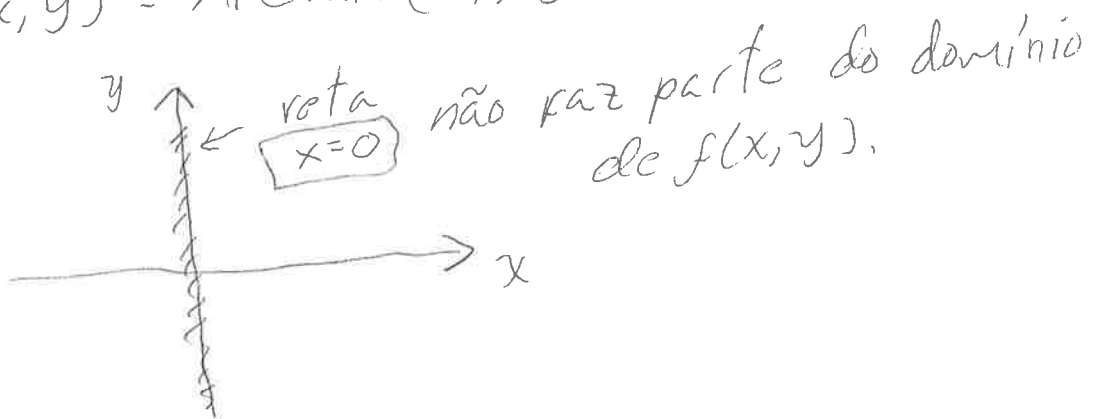 y) =
y
reta não faz parte do domínio
x=0
de f(x,y).
x